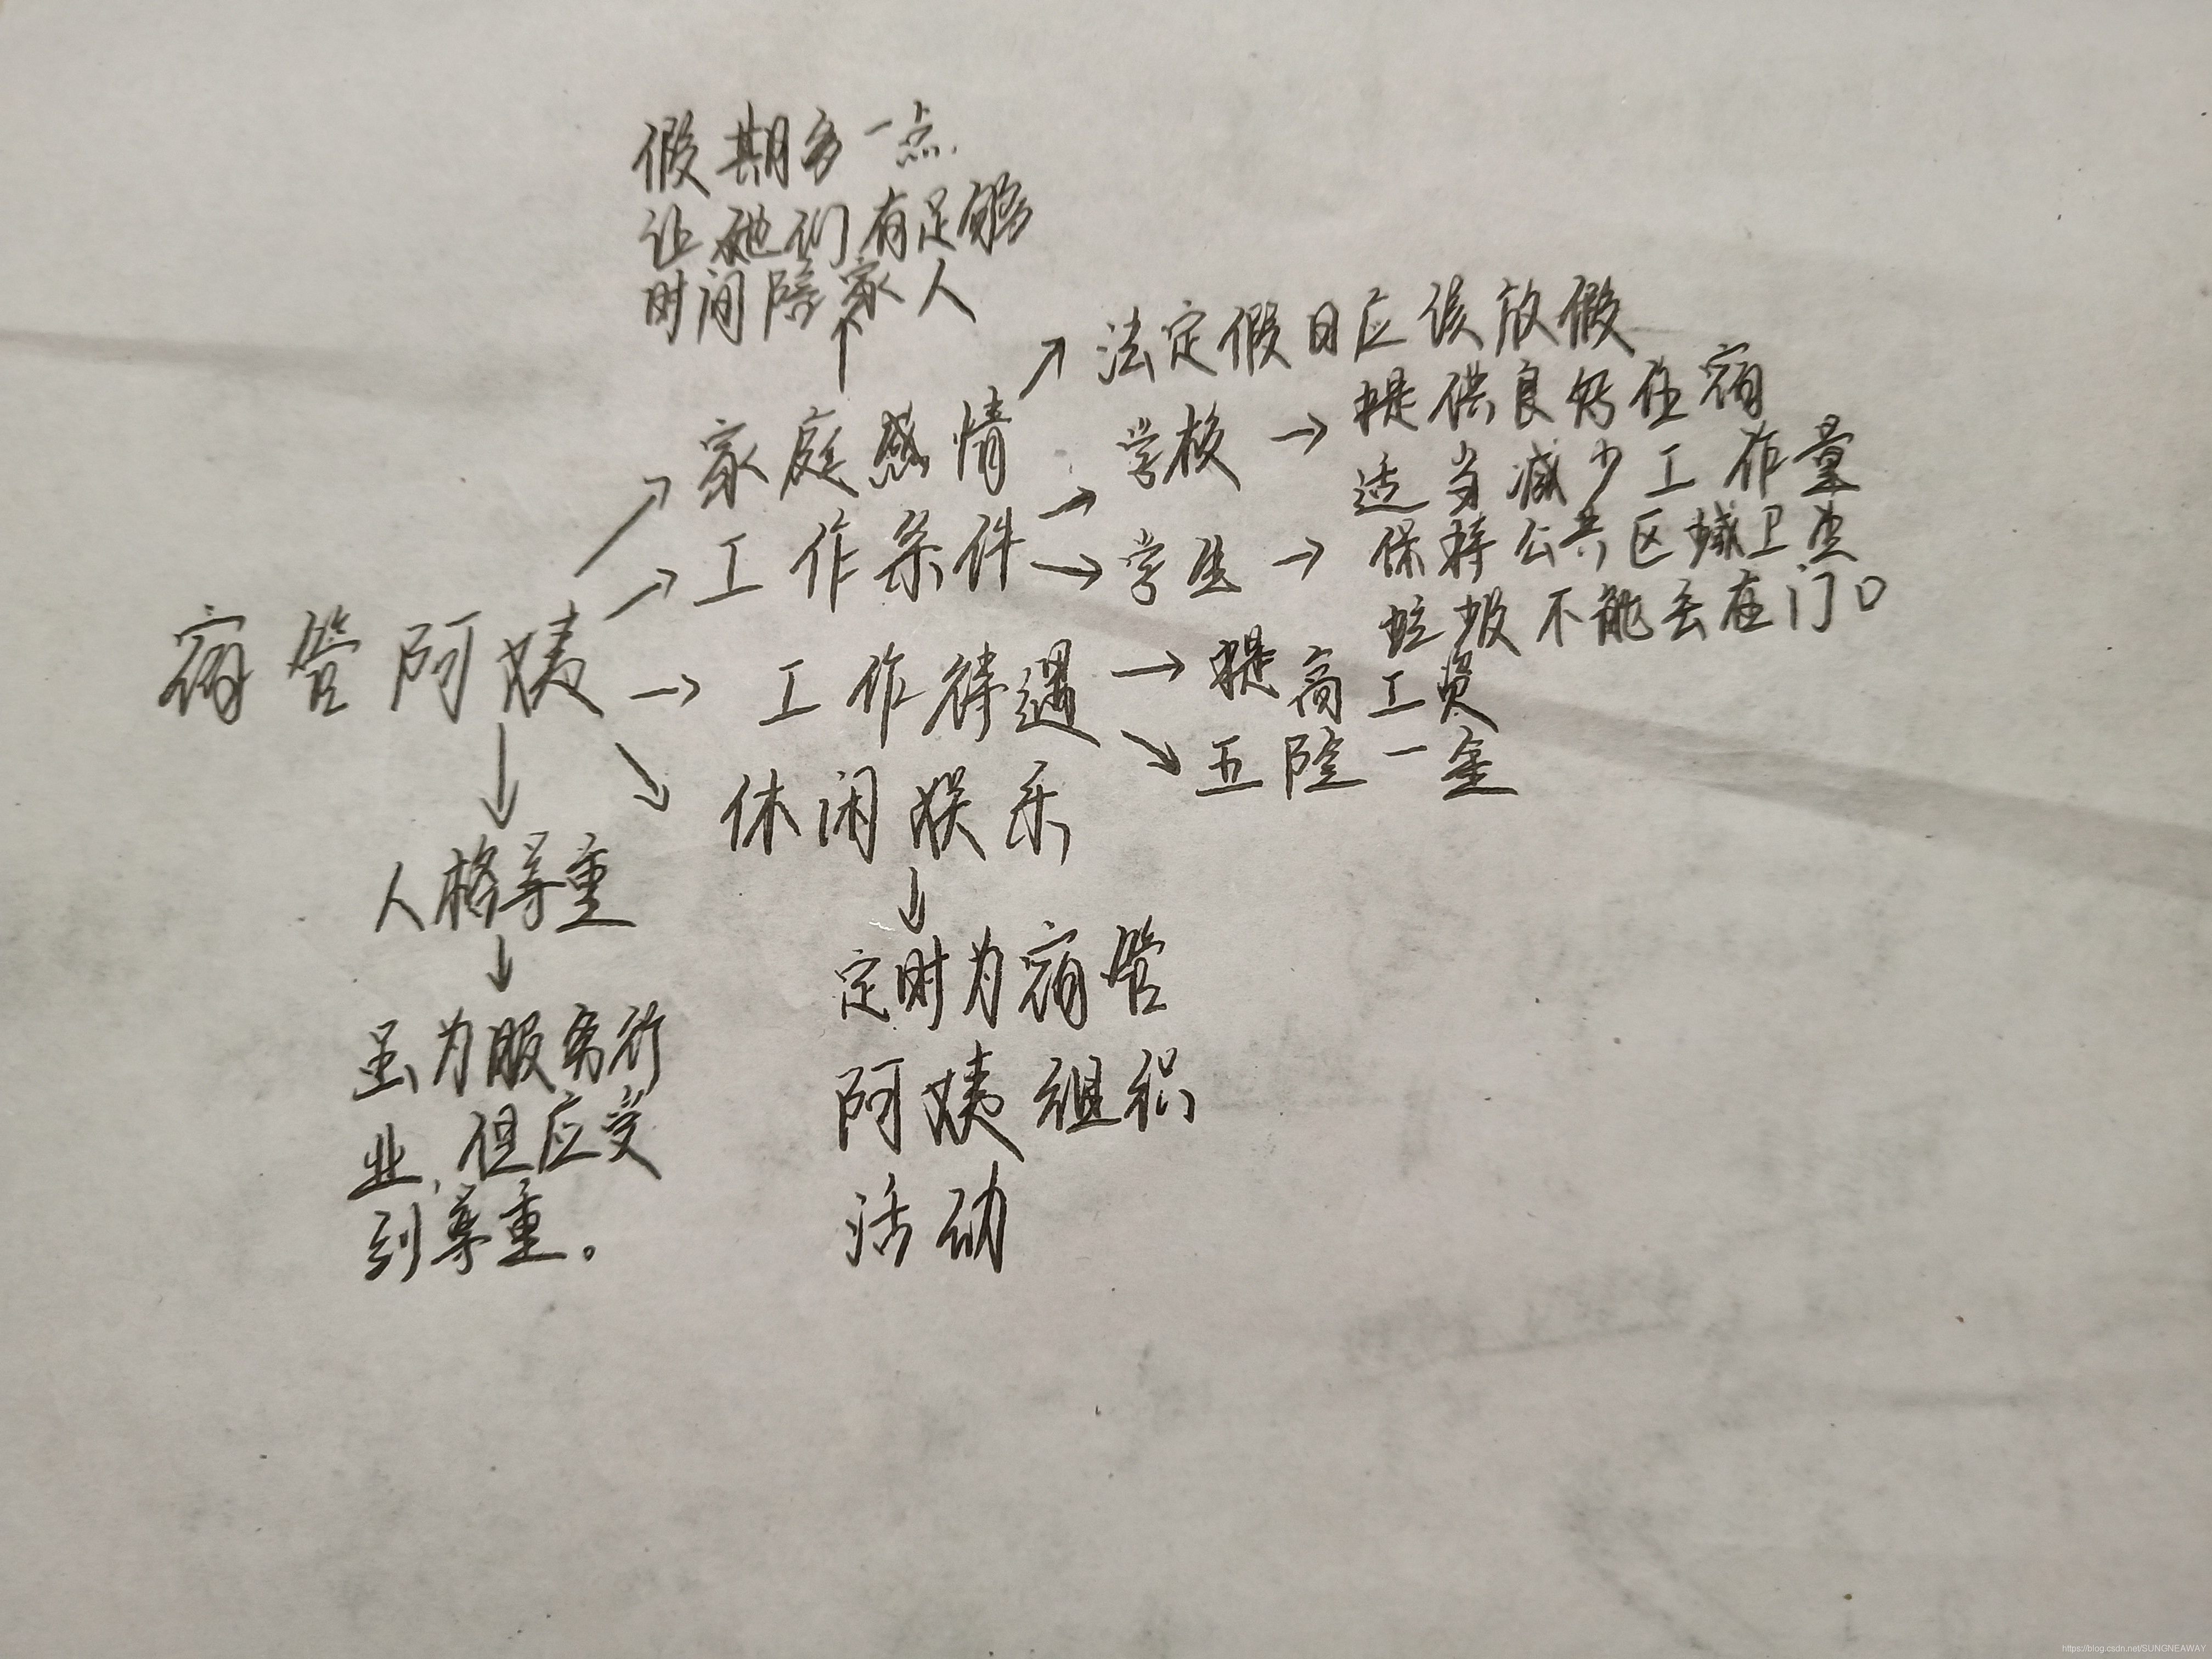 假期多一点.
让她们有足够
时间陪家人
法定假日应该放假
家庭感情
学校
提供良好住宿
适当减少工作量
工作条件
学生
保持公共区域卫生
垃圾不能丢在门口
宿管阿姨
工作待遇
提高工资
五险一金
休闲娱乐
人格尊重
定时为宿管
阿姨组织
活动
虽为服务行
业,但应受
到尊重。
https://blog.csdn.net/SUNGNEAWAY